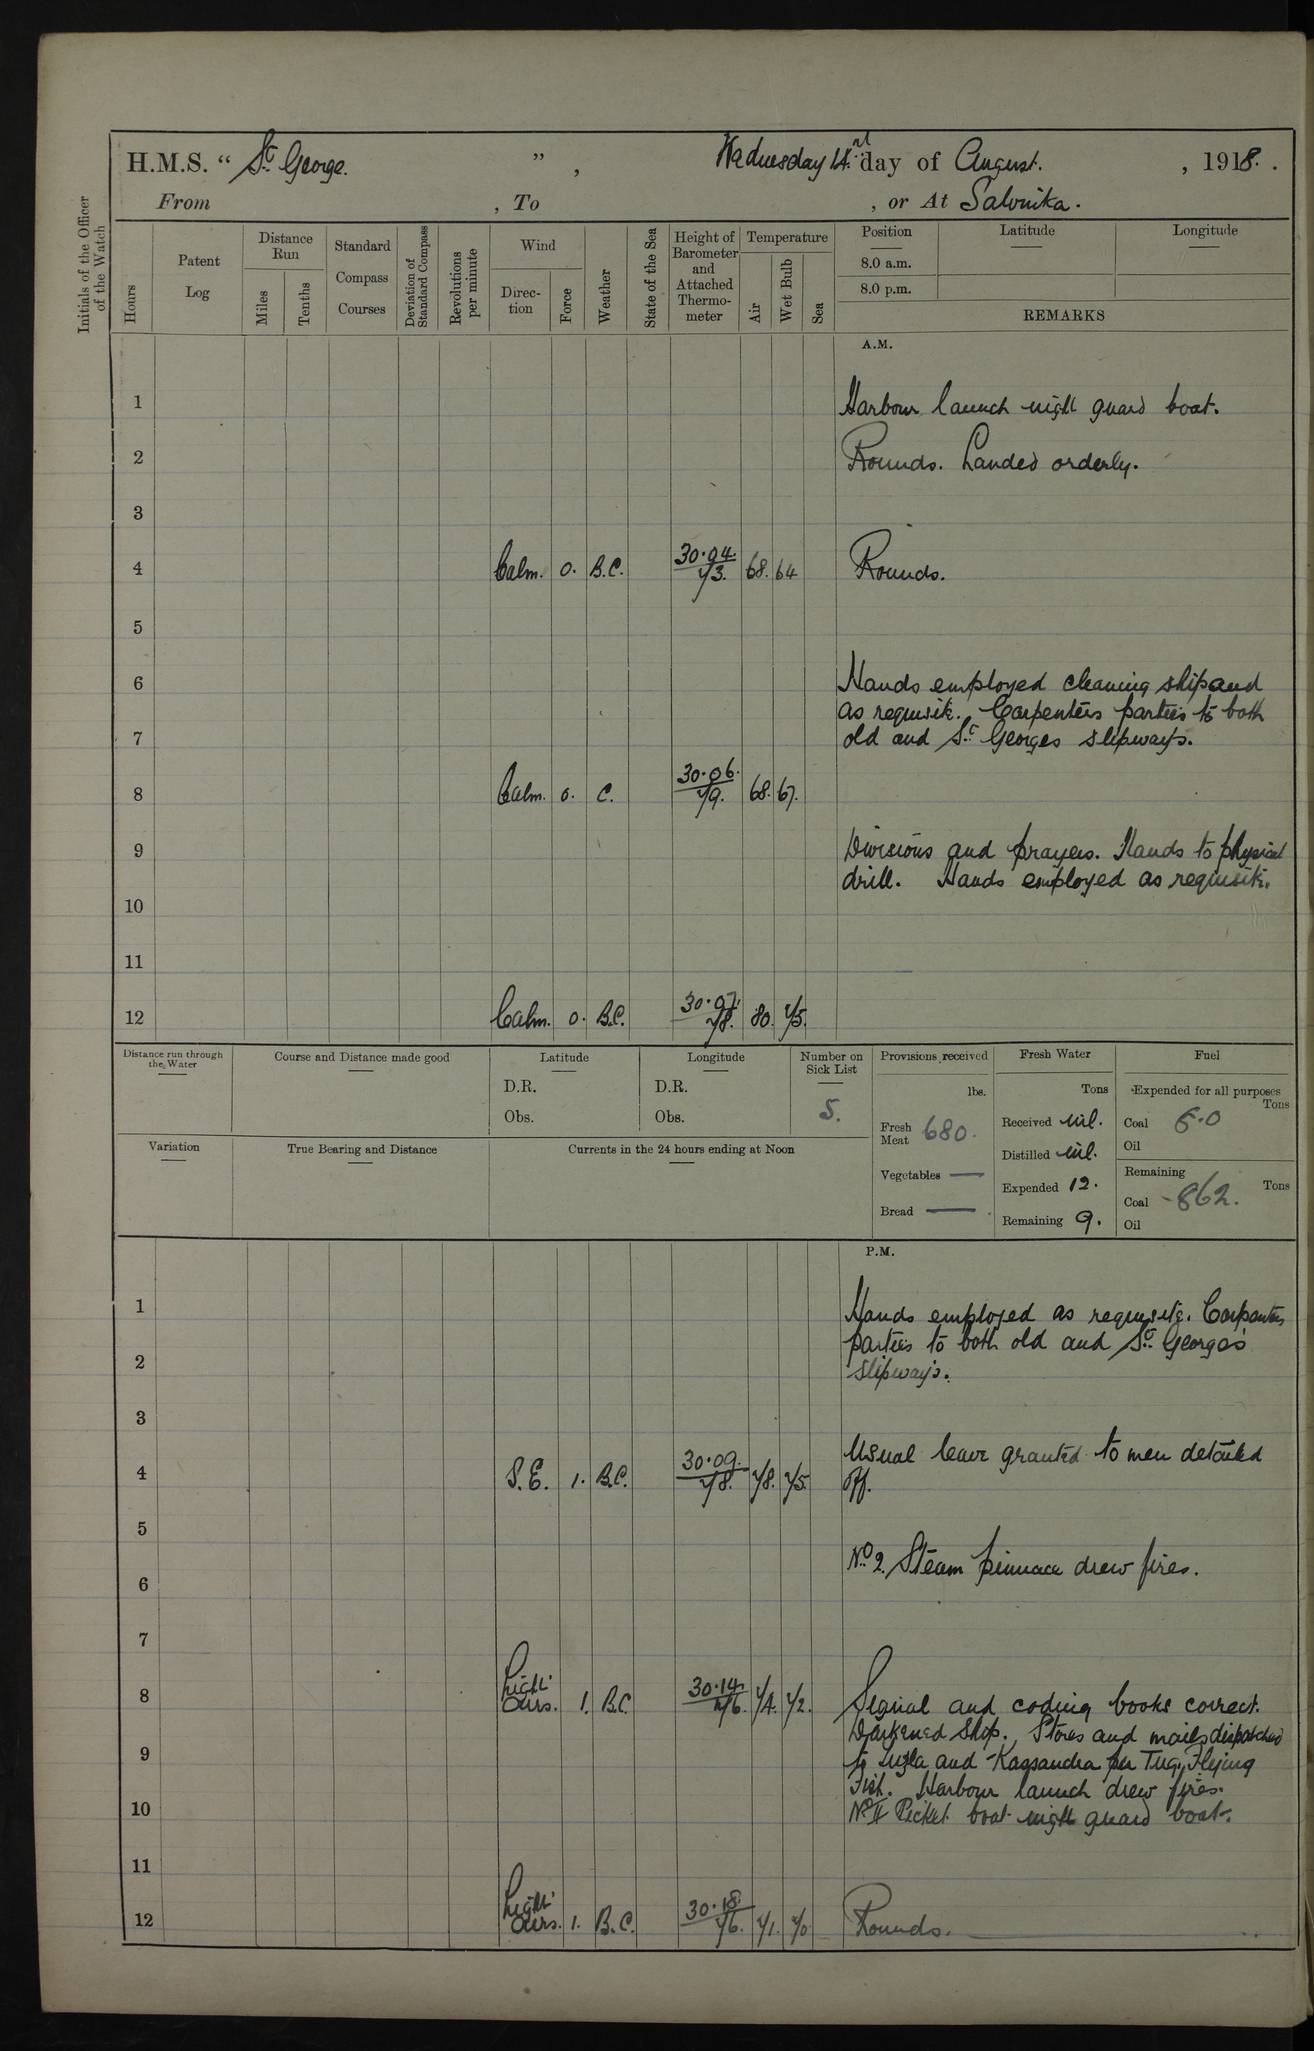 H.M.S. “ St. George. ” , Wednesday 14 day of August. , 1918.
From , To , or At Salonika.
Initials of the Officer of the Watch
Hours
Patent Log
Distance Run
Miles
Tenths
Standard Compass Courses
Deviation of Standard Compass
Revolutions per minute
Wind
Direction
Force
Weather
State of the Sea
Height of Barometer and Attached Thermometer
Temperature
Air
Wet Bulb
Sea
Position
Latitude
Longitude
8.0 a.m.
8.0 p.m.
REMARKS
A.M.
1 Harbour launch night guard boat.
2 Rounds. Landed orderly.
3
4 Calm. 0. B.C. 30.04. 73. 68. 64 Rounds.
5
6 Hands employed cleaning ship and
as requisite. Carpenters parties to both
7 old and St. Georges slipways.
8 Calm. 0. C. 30.06. 79. 68. 67.
9 Divisions and prayers. Hands to physical
drill. Hands employed as requisite.
10
11
12 Calm. 0. B.C. 30.07. 78. 80. 75.
Distance run through the Water
Course and Distance made good
Latitude
D.R.
Obs.
Longitude
D.R.
Obs.
Number on Sick List
5.
Provisions received
lbs.
Fresh Meat 680.
Vegetables —
Bread —
Fresh Water
Tons
Received nil.
Distilled nil.
Expended 12.
Remaining 9.
Fuel
Expended for all purposes
Tons
Coal 6.0
Oil
Remaining
Tons
Coal 862.
Oil
Variation
True Bearing and Distance
Currents in the 24 hours ending at Noon
P.M.
1 Hands employed as requisite. Carpenters
parties to both old and St. George's
2 slipways.
3
4 S.E. 1. B.C. 30.09. 78. 78. 75. Usual leave granted to men detailed
off.
5
No. 2. Steam pinnace drew fires.
6
7
8 Light airs. 1. B.C. 30.14. 76. 74. 72. Signal and coding books correct.
Darkened Ship. Stores and mails dispatched
9 to Tuzla and Kassandra per Tug. Flying
Fish. Harbour launch drew fires.
10 No. II Picket boat night guard boat.
11
12 Light airs. 1. B.C. 30.18. 76. 71. 70 Rounds.